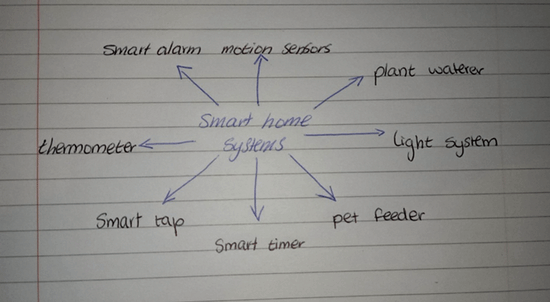 Smart alarm
motion sensors
plant waterer
Smart home
Systems
thermometer
light system
Smart tap
Smart timer
pet feeder